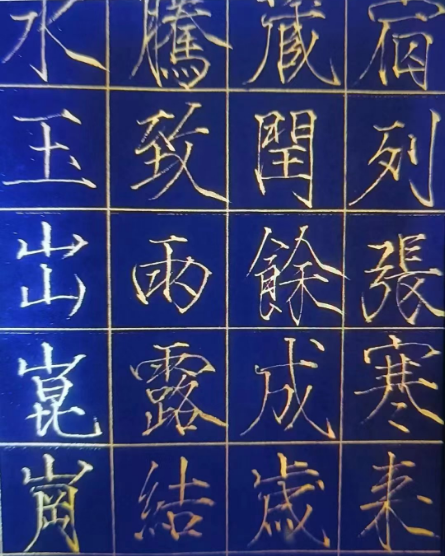 宿列張寒来
藏閏餘成歲
騰致雨露結
水玉出崑崗